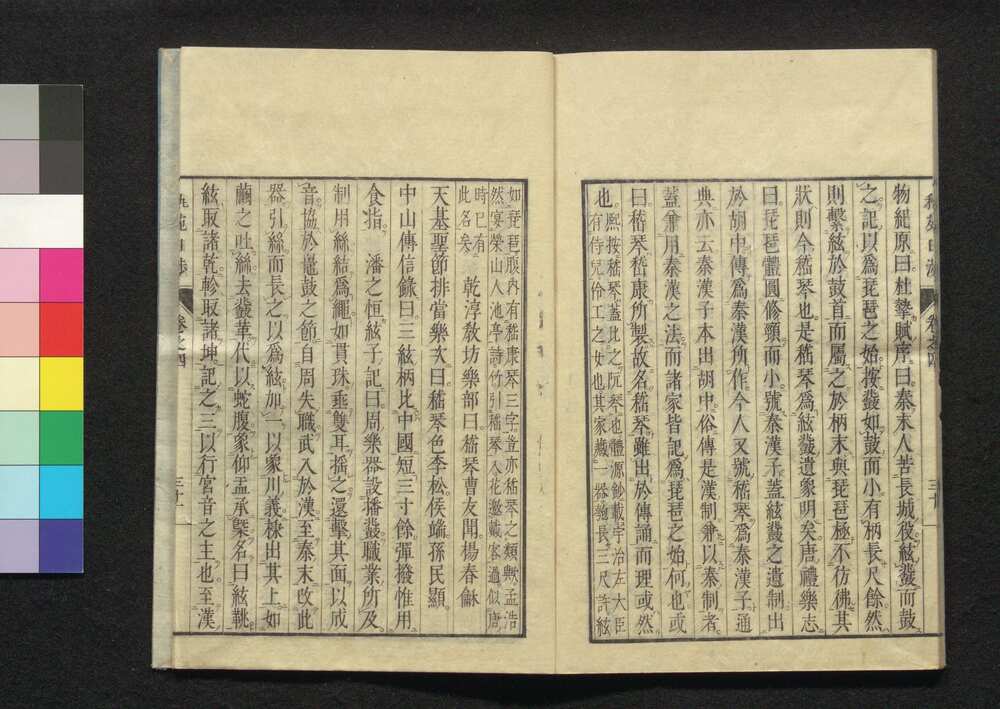 物紀原曰杜摯賦序曰秦末人苦長城役絃鼗而鼓
之記以為琵琶之始按鼗如鼓而小有柄長尺餘然
則繫絃於鼓首而屬之於柄末與琵琶極不彷彿其
狀則今嵆琴也是嵆琴為絃鼗遺象明矣唐禮樂志
曰琵琶體圓修頸而小號秦漢子蓋絃鼗之遺制出
於胡中傳為秦漢所作今人又號嵆琴為秦漢子通
典亦云秦漢子本出胡中俗傳是漢制兼以秦制者
蓋兼用秦漢之法而諸家皆記為琵琶之始何也或
曰嵆琴嵆康所製故名嵆琴雖出於傳誦而理或然
也
熙按嵆琴蓋比之阮琴也體源鈔載宇治左大臣
有侍兒伶工之女也其家藏一器
長三尺許絃
卷之四
三十
如琵琶腹內有嵆康琴三字並亦嵆琴之類歟孟浩
然宴榮山人池亭詩竹引嵆琴入花邀戴客過似唐
時已有
此名矣
乾淳教坊樂部曰嵆琴曹友聞楊春龢
天基聖節排當樂次曰嵆琴色李松侯端孫民顯
中山傳信錄曰三絃柄比中國短三寸餘彈撥惟用
食指
潘之恒絃子記曰周樂器設播鼗職業所及
制用絲結為繩如貫珠垂雙耳搖之還擊其面以成
音協於鼉鼓之節自周失職武入於漢至秦末改此
器引絲而長之以為絃加一以象川義
出其上如
繭之吐絲去鼗革代以蛇腹象仰盂承槩名曰絃鞉
絃取諸乾軫取諸坤記之三以行宮音之主也至漢
卷之四
三十一